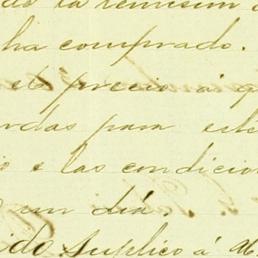 de la remision
ha comprado.
el precio á q
rdas para este
o e las condicio
un dia.
ido. Suplico á U